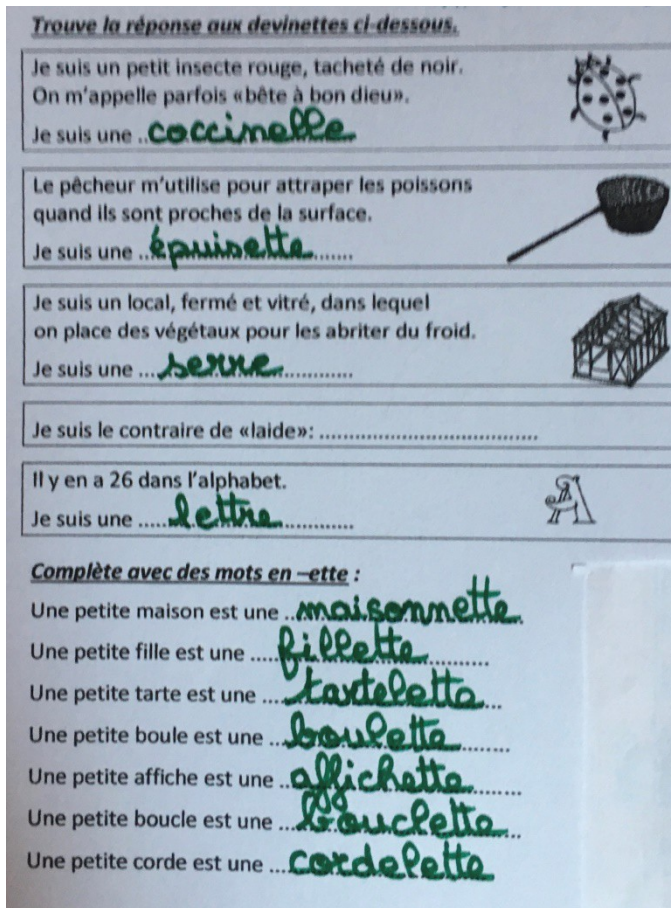 Trouve la réponse aux devinettes ci-dessous.
Je suis un petit insecte rouge, tacheté de noir.
On m'appelle parfois «bête à bon dieu».
Je suis une ..coccinelle
Le pêcheur m'utilise pour attraper les poissons
quand ils sont proches de la surface.
Je suis une ...épuisette.......
Je suis un local, fermé et vitré, dans lequel
on place des végétaux pour les abriter du froid.
Je suis une ...serre............
Je suis le contraire de «laide»: ....................................
Il y en a 26 dans l'alphabet.
Je suis une .....lettre............
A
Complète avec des mots en –ette :
Une petite maison est une ..maisonnette.
Une petite fille est une ....fillette..........
Une petite tarte est une ....tartelette...
Une petite boule est une ...boulette........
Une petite affiche est une ..affichette.......
Une petite boucle est une ...bouclette...
Une petite corde est une ...cordelette